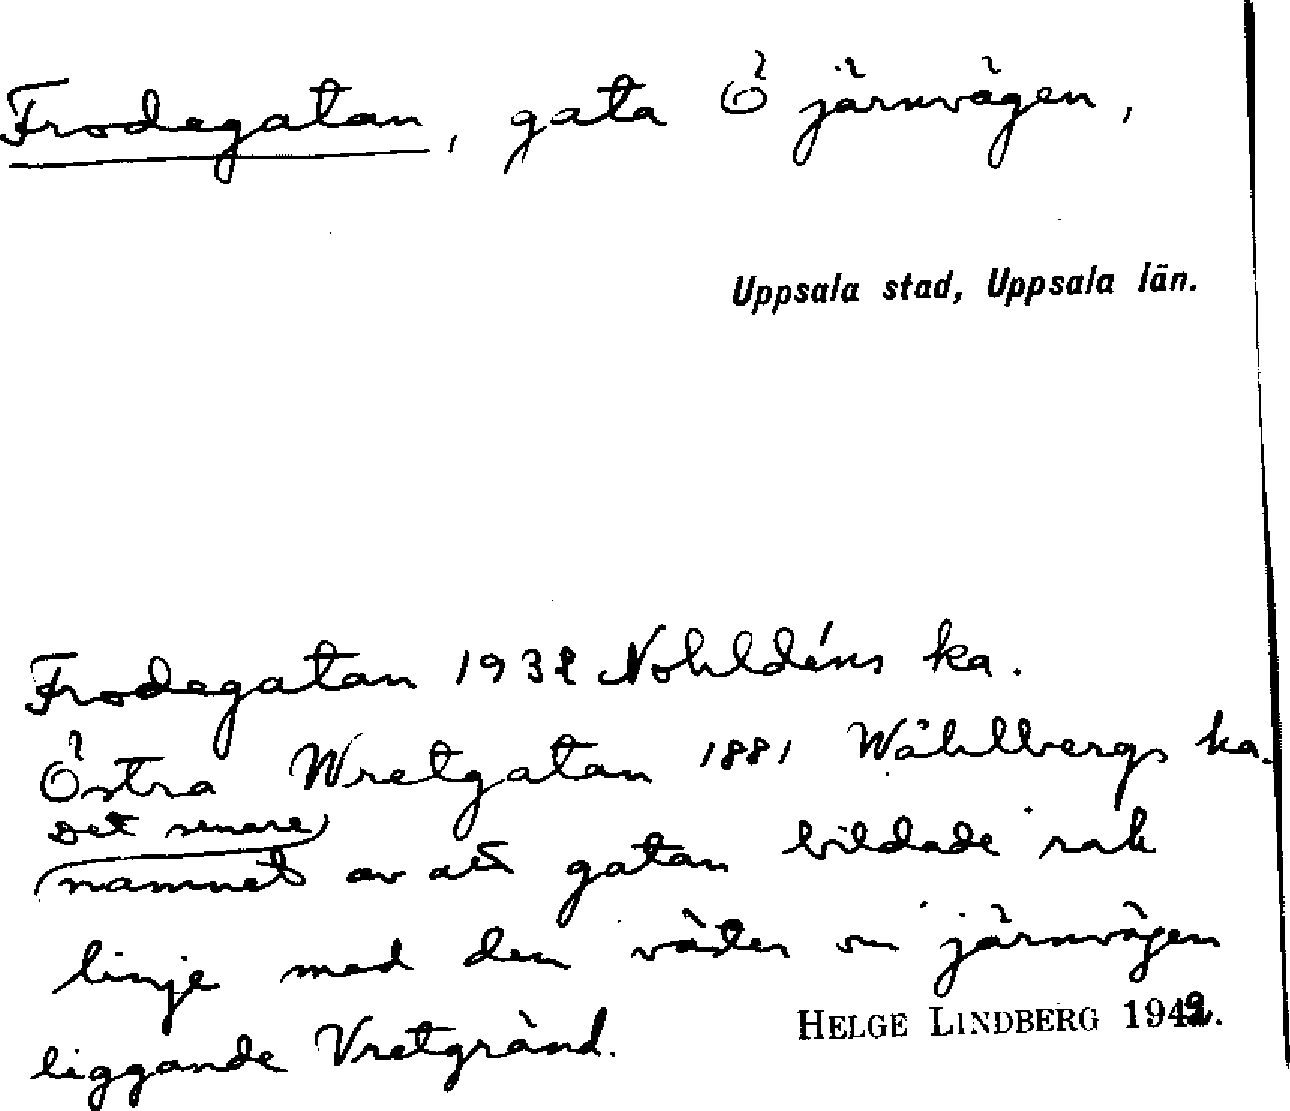 Frodegatan, gata Ö järnvägen,
Uppsala stad, Uppsala län.
Frodegatan 1932 Nohldéns ka.
Östra Wretgatan 1881 Wåhlbergs ka.
Det senare
namnet av att gatan bildade rak
linje med den väster om järnvägen
liggande Vretgränd.
HELGE LINDBERG 1942.